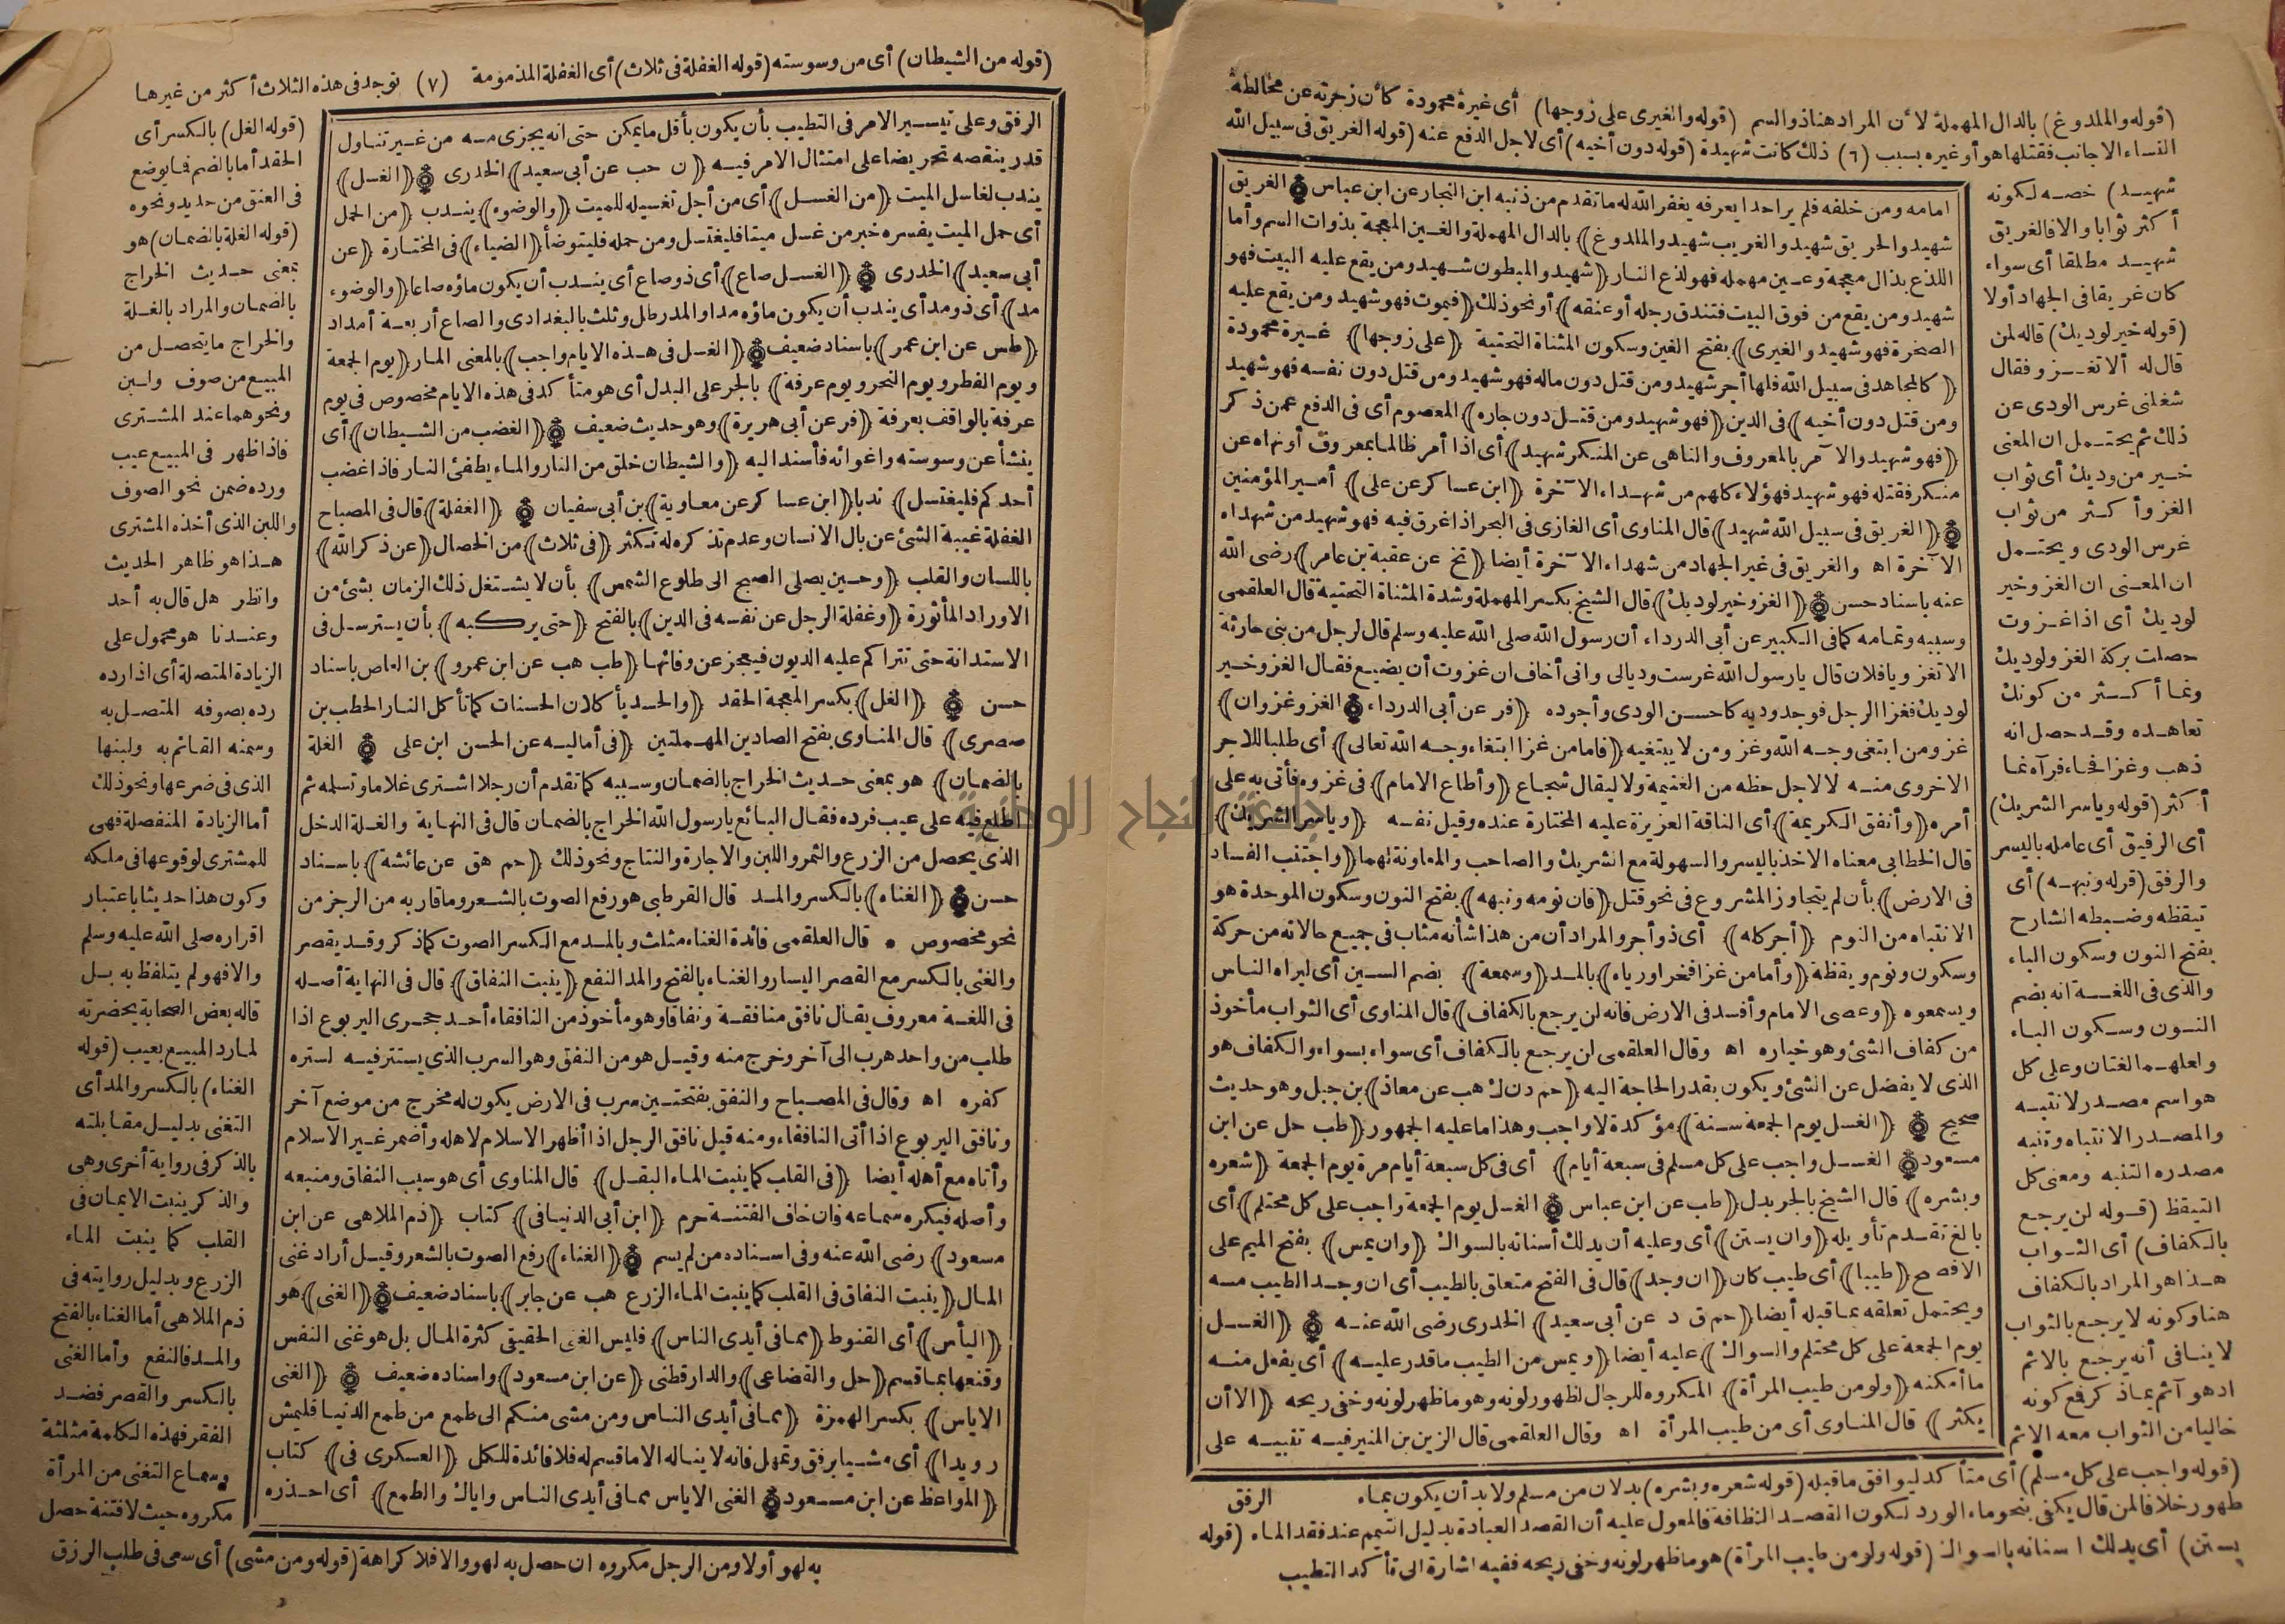 (قوله والملدوغ) بالدال المهملة لأن المراد هنا ذو السم (قوله والغيرى على زوجها) أى غيرة محمودة كأن زجرته عن مخالطة
النساء الاجانب فقتلها هو أو غيره بسبب (٦) ذلك كانت شهيدة (قوله دون أخيه) أى لاجل الدفع عنه (قوله الغريق فى سبيل الله
شهيد) خصه لكونه
أكثر ثوابا والا فالغريق
شهيد مطلقا أى سواء
كان غريقا فى الجهاد أولا
(قوله خير لوديك) قاله لمن
قال له ألا تغزو فقال
شغلنى غرس الودى عن
ذلك ثم يحتمل ان المعنى
خير من وديك أى ثواب
الغزو أكثر من ثواب
غرس الودى ويحتمل
ان المعنى ان الغزو خير
لوديك أى اذا غزوت
حصلت بركة الغزو لوديك
ونما أكثر من كونك
تعاهده وقد حصل انه
ذهب وغزا فجاء فرآه نما
أكثر (قوله وياسر الشريك)
أى الرفيق أى عامله باليسر
والرفق (قوله ونبهه) أى
تيقظه وضبطه الشارح
بفتح النون وسكون الباء
والذى فى اللغة انه بضم
النون وسكون الباء
ولعلهما لغتان وعلى كل
هو اسم مصدر لانتبه
والمصدر الانتباه وتنبه
مصدره التنبه ومعنى كل
التيقظ (قوله لن يرجع
بالكفاف) أى الثواب
هذا هو المراد بالكفاف
هنا وكونه لا يرجع بالثواب
لا ينافى أنه يرجع بالاثم
اذ هو آثم بما ذكر فمع كونه
خاليا من الثواب معه الاثم
امامه ومن خلفه فلم ير احدا يعرفه يغفر الله له ما تقدم من ذنبه ابن النجار عن ابن عباس ۞ الغريق
شهيد والحريق شهيد والغريب شهيد والملدوغ) بالدال المهملة والغين المعجمة بذوات السم وأما
اللذع بذال معجمة وعين مهملة فهو لذع النار (شهيد والمبطون شهيد ومن يقع عليه البيت فهو
شهيد ومن يقع من فوق البيت فتندق رجله أو عنقه) أو نحو ذلك (فيموت فهو شهيد ومن يقع عليه
الصخرة فهو شهيد والغيرى) بفتح الغين وسكون المثناة التحتية (على زوجها) غيرة محمودة
(كالمجاهد فى سبيل الله فلها أجر شهيد ومن قتل دون ماله فهو شهيد ومن قتل دون نفسه فهو شهيد
ومن قتل دون أخيه) فى الدين (فهو شهيد ومن قتل دون جاره) المعصوم أى فى الدفع عمن ذكر
(فهو شهيد والآمر بالمعروف والناهى عن المنكر شهيد) أى اذا أمر ظالما بمعروف أو نهاه عن
منكر فقتله فهو شهيد فهؤلاء كلهم من شهداء الآخرة (ابن عساكر عن على) أمير المؤمنين
۞ (الغريق فى سبيل الله شهيد) قال المناوى أى الغازى فى البحر اذا غرق فيه فهو شهيد من شهداء
الآخرة اه والغريق فى غير الجهاد من شهداء الآخرة أيضا (تخ عن عقبة بن عامر) رضى الله
عنه باسناد حسن ۞ (الغزو خير لوديك) قال الشيخ بكسر المهملة وشدة المثناة التحتية قال العلقمى
وسببه وتمامه كما فى الكبير عن أبى الدرداء أن رسول الله صلى الله عليه وسلم قال لرجل من بنى حارثة
الا تغزو يا فلان قال يا رسول الله غرست وديا لى وانى أخاف ان غزوت أن يضيع فقال الغزو خير
لوديك فغزا الرجل فوجد وديه كاحسن الودى وأجوده (فر عن أبى الدرداء ۞ الغزو غزوان)
غزو من ابتغى وجه الله وغزو من لا يبتغيه (فاما من غزا ابتغاء وجه الله تعالى) أى طلبا للاجر
الاخروى منه لا لاجل حظه من الغنيمة ولا ليقال شجاع (وأطاع الامام) فى غزوه فأتى به على
أمره (وأنفق الكريمة) أى الناقة العزيزة عليه المختارة عنده وقيل نفسه (وياسر الشريك)
قال الخطابى معناه الاخذ باليسر والسهولة مع الشريك والصاحب والمعاونة لهما (واجتنب الفساد
فى الارض) بأن لم يتجاوز المشروع فى نحو قتل (فان نومه ونبهه) بفتح النون وسكون الموحدة هو
الانتباه من النوم (أجر كله) أى ذو أجر والمراد أن من هذا شأنه مثاب فى جميع حالاته من حركة
وسكون ونوم ويقظة (وأما من غزا فخرا ورياء) بالمد (وسمعة) بضم السين أى ليراه الناس
ويسمعوه (وعصى الامام وأفسد فى الارض فانه لن يرجع بالكفاف) قال المناوى أى الثواب مأخوذ
من كفاف الشئ وهو خياره اه وقال العلقمى لن يرجع بالكفاف أى سواء بسواء والكفاف هو
الذى لا يفضل عن الشئ ويكون بقدر الحاجة اليه (حم د ن ك هب عن معاذ) بن جبل وهو حديث
صحيح ۞ (الغسل يوم الجمعة سنة) مؤكدة لا واجب وهذا ما عليه الجمهور (طب حل عن ابن
مسعود ۞ الغسل واجب على كل مسلم فى سبعة أيام) أى فى كل سبعة أيام مرة يوم الجمعة (شعره
وبشره) قال الشيخ بالجر بدل (طب عن ابن عباس ۞ الغسل يوم الجمعة واجب على كل محتلم) أى
بالغ تقدم تأويله (وان يستن) أى وعليه أن يدلك أسنانه بالسواك (وان يمس) بفتح الميم على
الافصح (طيبا) أى طيب كان (ان وجد) قال فى الفتح متعلق بالطيب أى ان وجد الطيب مسه
ويحتمل تعلقه بما قبله أيضا (حم ق د عن أبى سعيد) الخدرى رضى الله عنه ۞ (الغسل
يوم الجمعة على كل محتلم والسواك) عليه أيضا (ويمس من الطيب ما قدر عليه) أى يفعل منه
ما أمكنه (ولو من طيب المرأة) المكروه للرجال لظهور لونه وهو ما ظهر لونه وخفى ريحه (الا أن
يكثر) قال المناوى أى من طيب المرأة اه وقال العلقمى قال الزين بن المنير فيه تنبيه على
(قوله واجب على كل مسلم) أى متأكد ليوافق ما قبله (قوله شعره وبشره) بدلان من مسلم ولا بد أن يكون بماء الرفق
طهور خلافا لمن قال يكفى بنحو ماء الورد لكون القصد النظافة فالمعول عليه أن القصد العبادة بدليل التيمم عند فقد الماء (قوله
يستن) أى يدلك اسنانه بالسواك (قوله ولو من طيب المرأة) هو ما ظهر لونه وخفى ريحه ففيه اشارة الى تأكد التطيب
(قوله من الشيطان) أى من وسوسته (قوله الغفلة فى ثلاث) أى الغفلة المذمومة (٧) توجد فى هذه الثلاث أكثر من غيرها
الرفق وعلى تيسير الامر فى التطيب بأن يكون بأقل ما يمكن حتى انه يجزى مسه من غير تناول
قدر ينقصه تحريضا على امتثال الامر فيه (ن حب عن أبى سعيد) الخدرى ۞ (الغسل)
يندب لغاسل الميت (من الغسل) أى من أجل تغسيله للميت (والوضوء) يندب (من الحمل
أى حمل الميت يفسره خبر من غسل ميتا فليغتسل ومن حمله فليتوضأ (الضياء) فى المختارة (عن
أبى سعيد) الخدرى ۞ (الغسل صاع) أى ذو صاع أى يندب أن يكون ماؤه صاعا (والوضوء
مد) أى ذو مد أى يندب أن يكون ماؤه مدا والمد رطل وثلث بالبغدادى والصاع أربعة أمداد
(طس عن ابن عمر) باسناد ضعيف ۞ (الغسل فى هذه الايام واجب) بالمعنى المار (يوم الجمعة
ويوم الفطر ويوم النحر ويوم عرفة) بالجر على البدل أى هو متأكد فى هذه الايام مخصوص فى يوم
عرفة بالواقف بعرفة (فر عن أبى هريرة) وهو حديث ضعيف ۞ (الغضب من الشيطان) أى
ينشأ عن وسوسته واغوائه فأسند اليه (والشيطان خلق من النار والماء يطفئ النار فاذا غضب
أحدكم فليغتسل) ندبا (ابن عساكر عن معاوية) بن أبى سفيان ۞ (الغفلة) قال فى المصباح
الغفلة غيبة الشئ عن بال الانسان وعدم تذكره له تكثر (فى ثلاث) من الخصال (عن ذكر الله)
باللسان والقلب (وحين يصلى الصبح الى طلوع الشمس) بأن لا يشتغل ذلك الزمان بشئ من
الاوراد المأثورة (وغفلة الرجل عن نفسه فى الدين) بالفتح (حتى يركبه) بأن يسترسل فى
الاستدانة حتى تتراكم عليه الديون فيعجز عن وفائها (طب هب عن ابن عمرو) بن العاص باسناد
حسن ۞ (الغل) بكسر المعجمة الحقد (والحسد يأكلان الحسنات كما تأكل النار الحطب بن
صصرى) قال المناوى بفتح الصادين المهملتين (فى أماليه عن الحسن ابن على ۞ الغلة
بالضمان) هو بمعنى حديث الخراج بالضمان وسببه كما تقدم أن رجلا اشترى غلاما وتسلمه ثم
اطلع فيه على عيب فرده فقال البائع يا رسول الله الخراج بالضمان قال فى النهاية والغلة الدخل
الذى يحصل من الزرع والثمر واللبن والاجارة والنتاج ونحو ذلك (حم هق عن عائشة) باسناد
حسن ۞ (الغناء) بالكسر والمد قال القرطبى هو رفع الصوت بالشعر وما قاربه من الرجز من
نحو مخصوص • قال العلقمى فائدة الغناء مثلث وبالمد مع الكسر الصوت كما ذكر وقد يقصر
والغنى بالكسر مع القصر اليسار والغناء بالفتح والمد النفع (ينبت النفاق) قال فى النهاية أصله
فى اللغة معروف يقال نافق منافقة ونفاقا وهو مأخوذ من النافقاء أحد جحرى اليربوع اذا
طلب من واحد هرب الى آخر وخرج منه وقيل هو من النفق وهو السرب الذى يستتر فيه لستره
كفره اه وقال فى المصباح والنفق بفتحتين سرب فى الارض يكون له مخرج من موضع آخر
ونافق اليربوع اذا أتى النافقاء ومنه قيل نافق الرجل اذا أظهر الاسلام لاهله وأضمر غير الاسلام
وأتاه مع أهله أيضا (فى القلب كما ينبت الماء البقل) قال المناوى أى هو سبب النفاق ومنبعه
وأصله فيكره سماعه فان خاف الفتنة حرم (ابن أبى الدنيا فى) كتاب (ذم الملاهى عن ابن
مسعود) رضى الله عنه وفى اسناده من لم يسم ۞ (الغناء) رفع الصوت بالشعر وقيل أراد غنى
المال (ينبت النفاق فى القلب كما ينبت الماء الزرع هب عن جابر) باسناد ضعيف ۞ (الغنى) هو
(اليأس) أى القنوط (مما فى أيدى الناس) فليس الغنى الحقيقى كثرة المال بل هو غنى النفس
وقنعها بما قسم (حل والقضاعى) والدارقطنى (عن ابن مسعود) واسناده ضعيف ۞ (الغنى
الاياس) بكسر الهمزة (مما فى أيدى الناس ومن مشى منكم الى طمع من طمع الدنيا فليمش
رويدا) أى مشيا برفق وتمهل فانه لا يناله الا ما قسم له فلا فائدة للكل (العسكرى فى) كتاب
(المواعظ عن ابن مسعود ۞ الغنى الاياس مما فى أيدى الناس واياك والطمع) أى احذره
(قوله الغل) بالكسر أى
الحقد أما بالضم فما يوضع
فى العنق من حديد ونحوه
(قوله الغلة بالضمان) هو
بمعنى حديث الخراج
بالضمان والمراد بالغلة
والخراج ما يتحصل من
المبيع من صوف ولبن
ونحوهما عند المشترى
فاذا ظهر فى المبيع عيب
ورده ضمن نحو الصوف
واللبن الذى أخذه المشترى
هذا هو ظاهر الحديث
وانظر هل قال به أحد
وعندنا هو محمول على
الزيادة المتصلة أى اذا رده
رده بصوفه المتصل به
وسمنه القائم به ولبنها
الذى فى ضرعها ونحو ذلك
أما الزيادة المنفصلة فهى
للمشترى لوقوعها فى ملكه
وكون هذا حديثا باعتبار
اقراره صلى الله عليه وسلم
والا فهو لم يتلفظ به بل
قاله بعض الصحابة بحضرته
لما رد المبيع بعيب (قوله
الغناء) بالكسر والمد أى
التغنى بدليل مقابلته
بالذكر فى رواية أخرى وهى
والذكر ينبت الايمان فى
القلب كما ينبت الماء
الزرع وبدليل روايته فى
ذم الملاهى أما الغناء بالفتح
والمد فالنفع وأما الغنى
بالكسر والقصر فضد
الفقر فهذه الكلمة مثلثة
وسماع التغنى من المرأة
مكروه حيث لا فتنة حصل
به لهو أولا ومن الرجل مكروه ان حصل به لهو والا فلا كراهة (قوله ومن مشى) أى سعى فى طلب الرزق
جامعة النجاح الوطنية